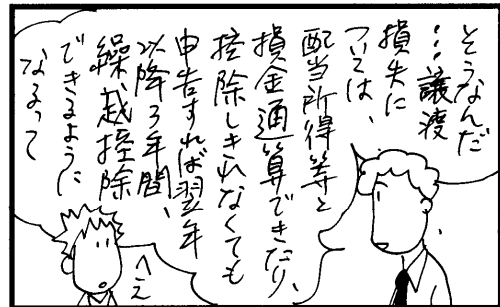 そうなんだ
…譲渡
損失に
ついては、
配当所得等と
損金通算できたり、
控除しきれなくても
申告すれば翌年
以降3年間、
繰越控除
できるように
なるって
へえ